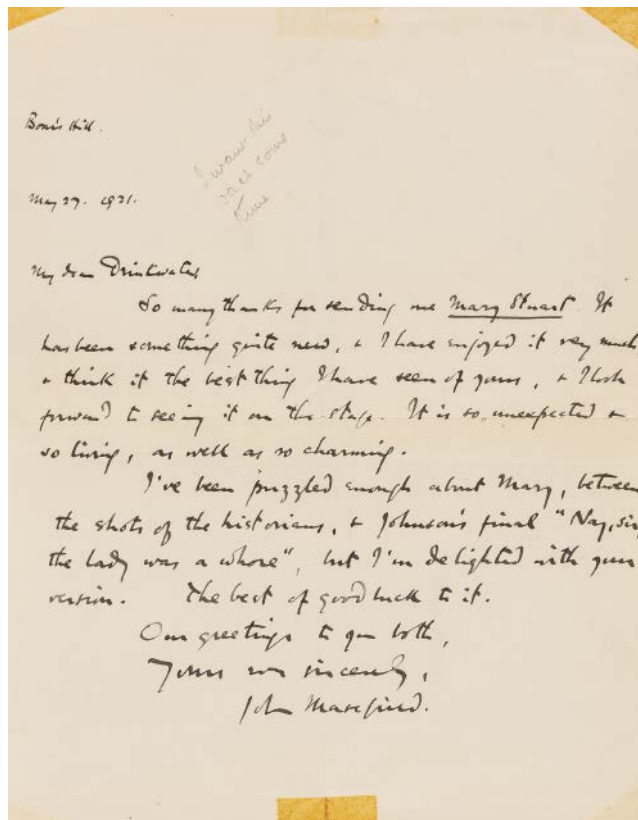 Boar's Hill.
May 27. 1921.
My dear Drinkwater,
So many thanks for sending me Mary Stuart. It
has been something quite new, & I have enjoyed it very much
& think it the best thing I have seen of yours, & I look
forward to seeing it on the stage. It is so unexpected &
so living, as well as so charming.
I've been puzzled enough about Mary, between
the shots of the historians, & Johnson's final "Nay, sir,
the lady was a whore", but I'm delighted with your
version. The best of good luck to it.
Our greetings to you both,
Yours very sincerely,
John Masefield.